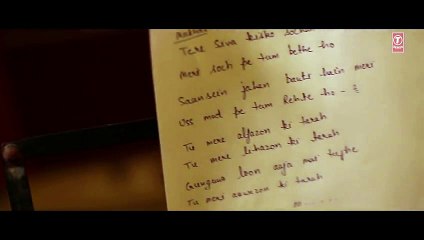 Tere siva kisko soch
Meri soch pe tum bethe ho
Saansein jahan banti hain meri
Uss mod pe tum Rehte ho - 2
Tu mere alfazon ki terah
Tu mere lihazon ki terah
Gunguna loon aja mai tujhe
Tu meri aawazon ki tarah
T